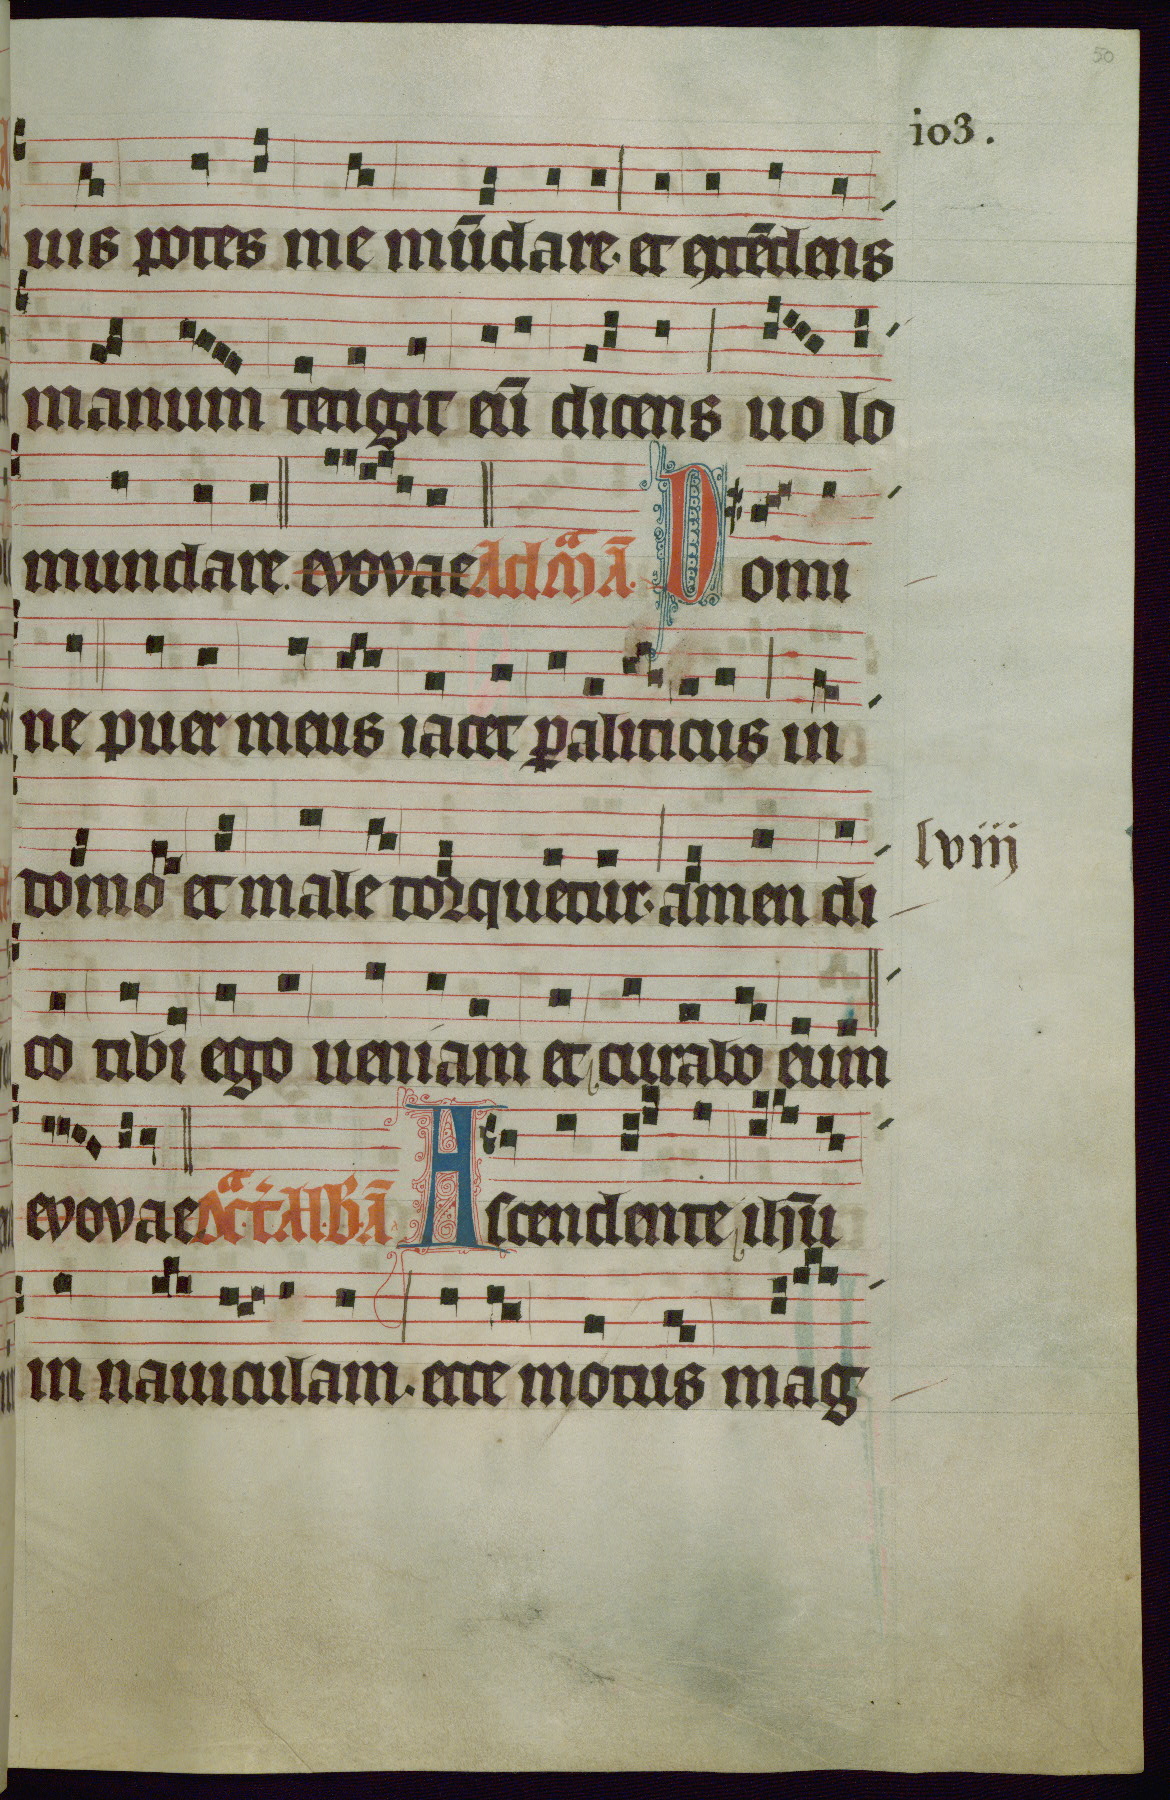 50
103.
uis potes me mūdare. et extēdens
manum tetigit eū dicens uo lo
mundare. evovae Ad mªā. Domi
ne puer meus iacet paliticus in
tomo et male torquetur. amen di
lviij
co tibi ego ueniam et curabo eum
evovae Ascendente ihū
in nauiculam. ecce motus mag